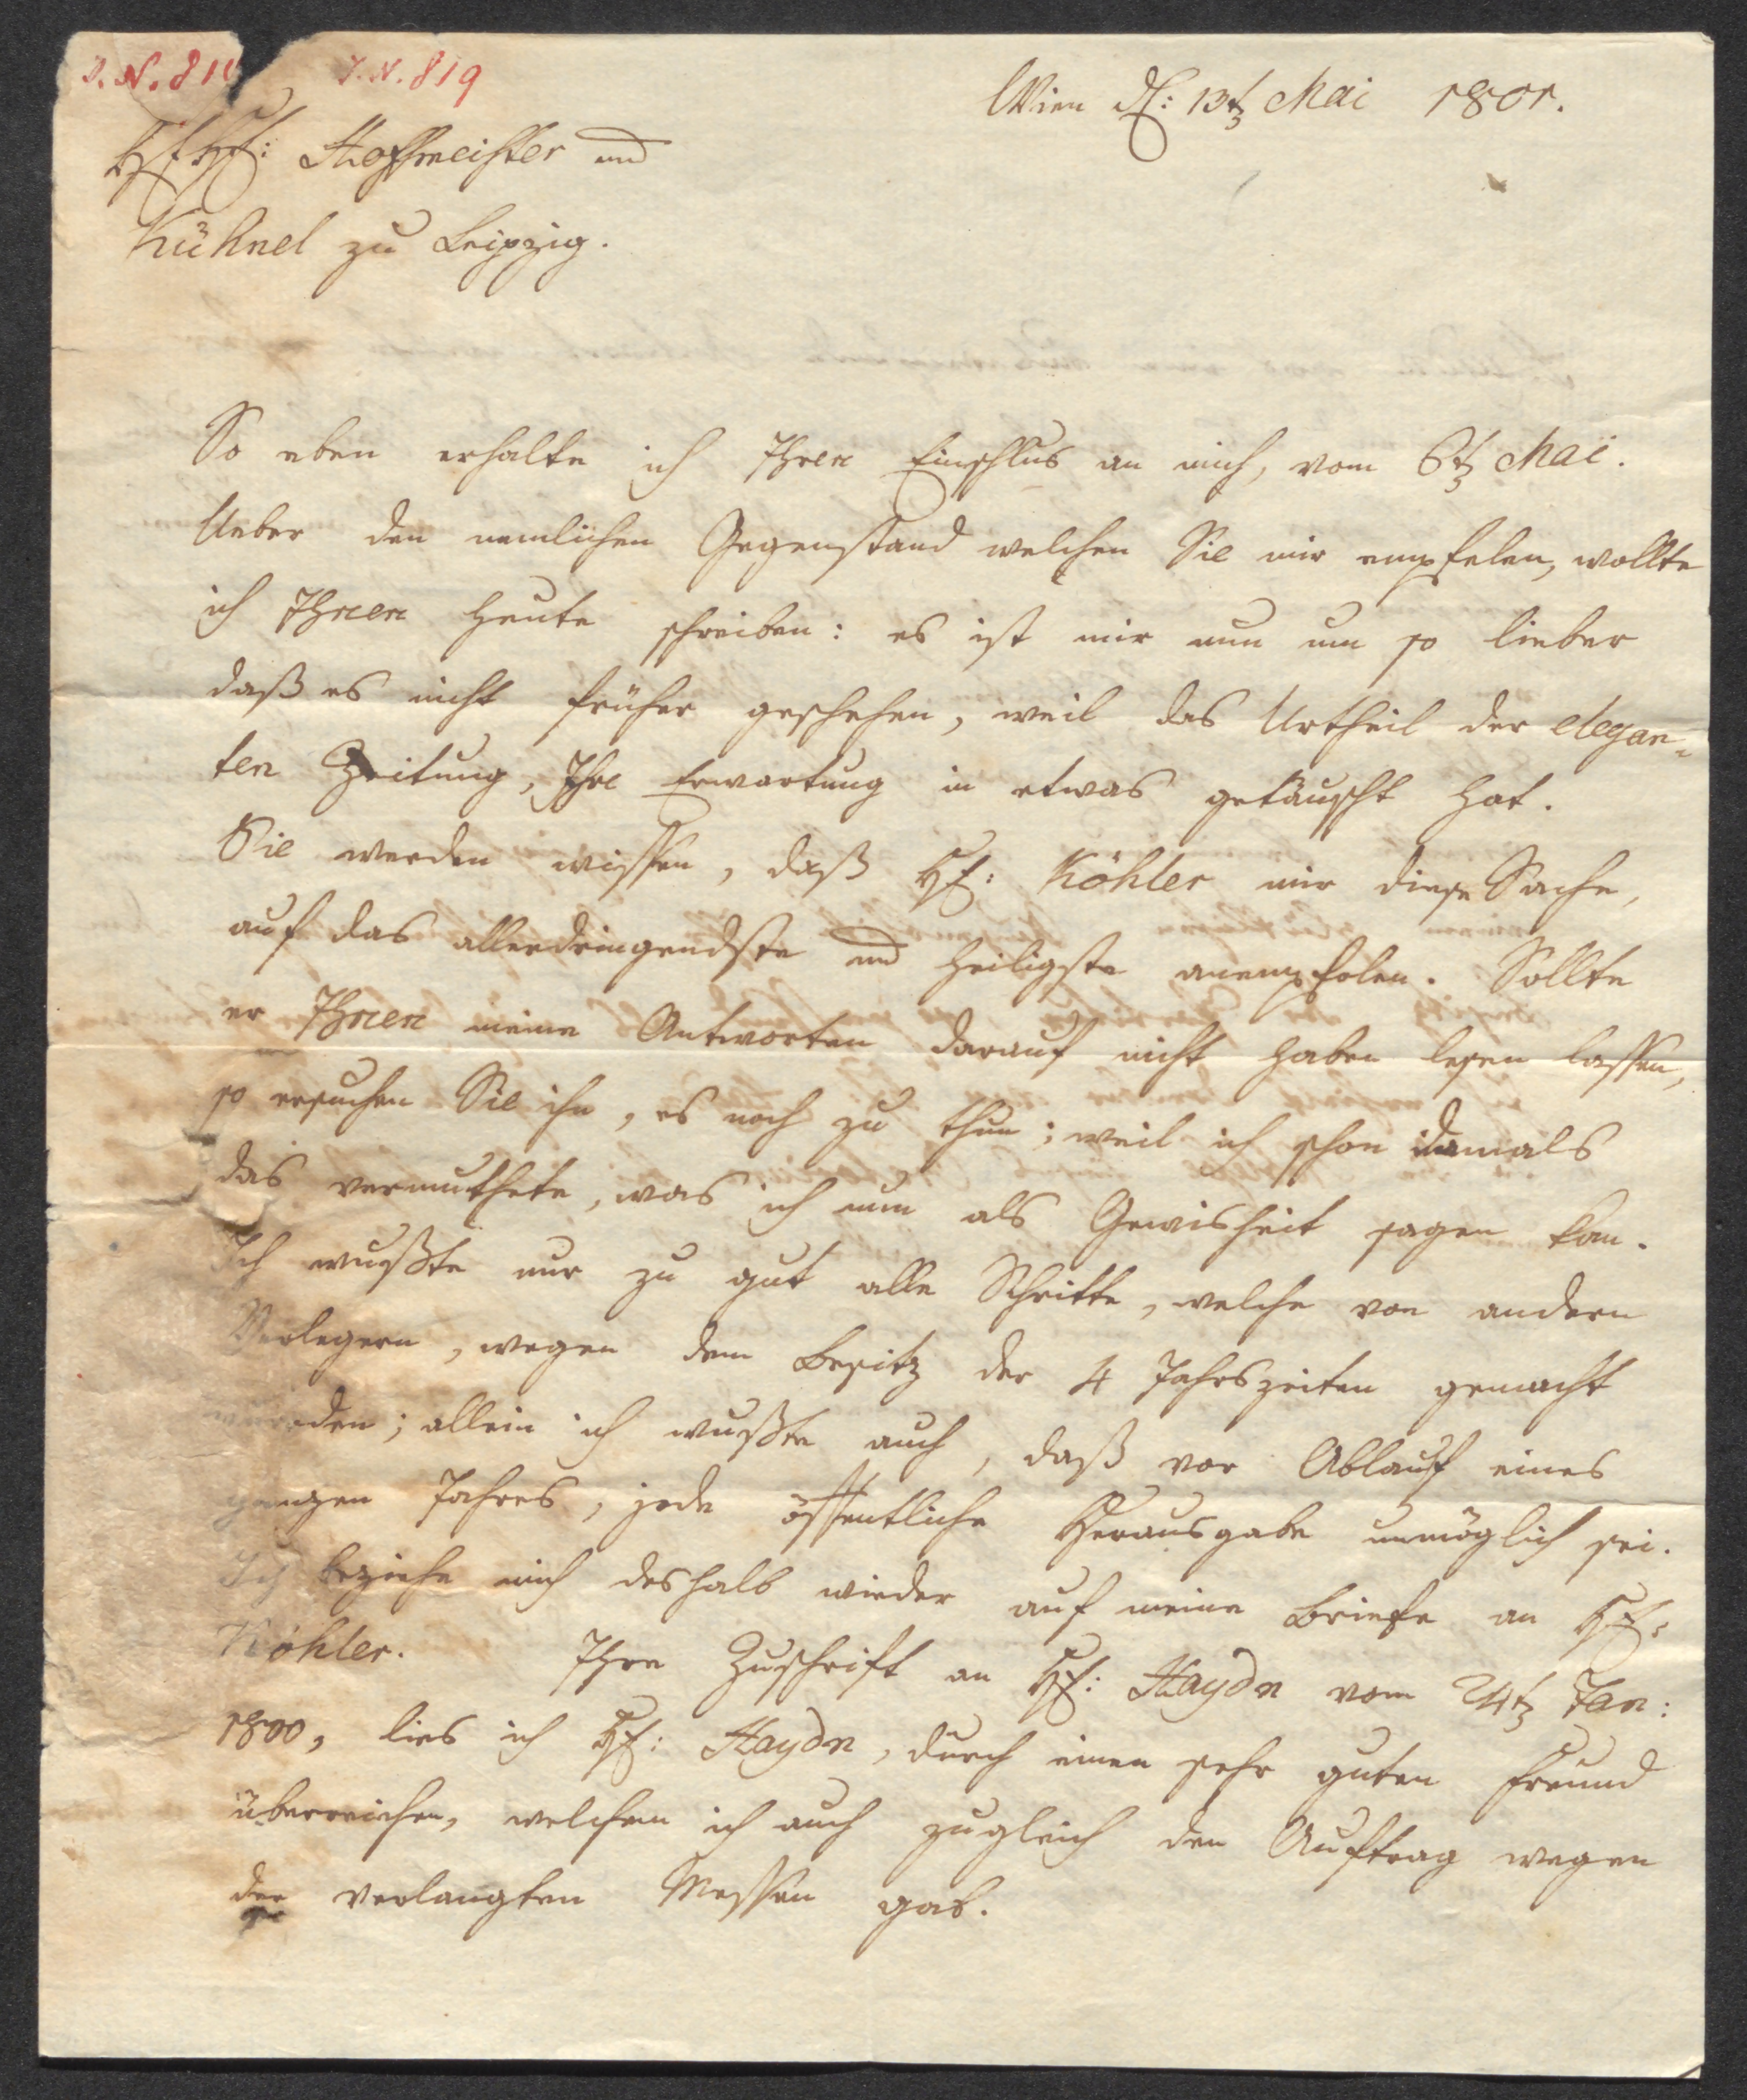 I.N. 819
Wien d: 13t Mai 1801.
HH: Hoffmeister und
Kühnel zu Leipzig.
So eben erhalte ich Ihren Einschlus an mich, vom 6t Mai.
Ueber den nemlichen Gegenstand welchen Sie mir empfelen, wollte
ich Ihnen heute schreiben: es ist mir nun um so lieber
daß es nicht früher geschehen, weil das Urtheil der elegan=
ten Zeitung, Ihre Erwartung in etwas getäuscht hat.
Sie werden wissen, daß H: Köhler mir diese Sache,
auf das allerdringendste und heiligste anempfolen. Sollte
er Ihnen meine Antworten darauf nicht haben lesen lassen,
so ersuchen Sie ihn, es noch zu thun; weil ich schon damals
das vermuthete, was ich nun als Gewisheit sagen kan.
Ich wußte nur zu gut alle Schritte, welche von andern
Verlegern, wegen dem Besitz der 4 Jahrszeiten gemacht
wurden; allein ich wußte auch, daß vor Ablauf eines
ganzen Jahres, jede öffentliche Herausgabe unmöglich sei.
Ich beziehe mich deshalb wieder auf meine Briefe an H:
Köhler. Ihre Zuschrift an H: Haydn vom 24t Jan:
1800, lies ich H: Haydn, durch einen sehr guten Freund
überreichen, welchem ich auch zugleich den Auftrag wegen
der verlangten Messen gab.